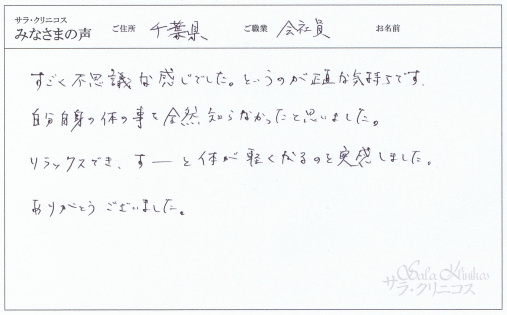 サラ・クリニコス
みなさまの声 ご住所 千葉県 ご職業 会社員 お名前
すごく不思議な感じでした。というのが正直な気持ちです。
自分自身の体の事を全然知らなかったと思いました。
リラックスでき、すーーと体が軽くなるのを実感しました。
ありがとうございました。
Sala Klinikos
サラ・クリニコス